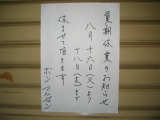 夏期休業のお知らせ
八月十六日(火)より
十八日(木)まで
休ませて頂きます
ボン